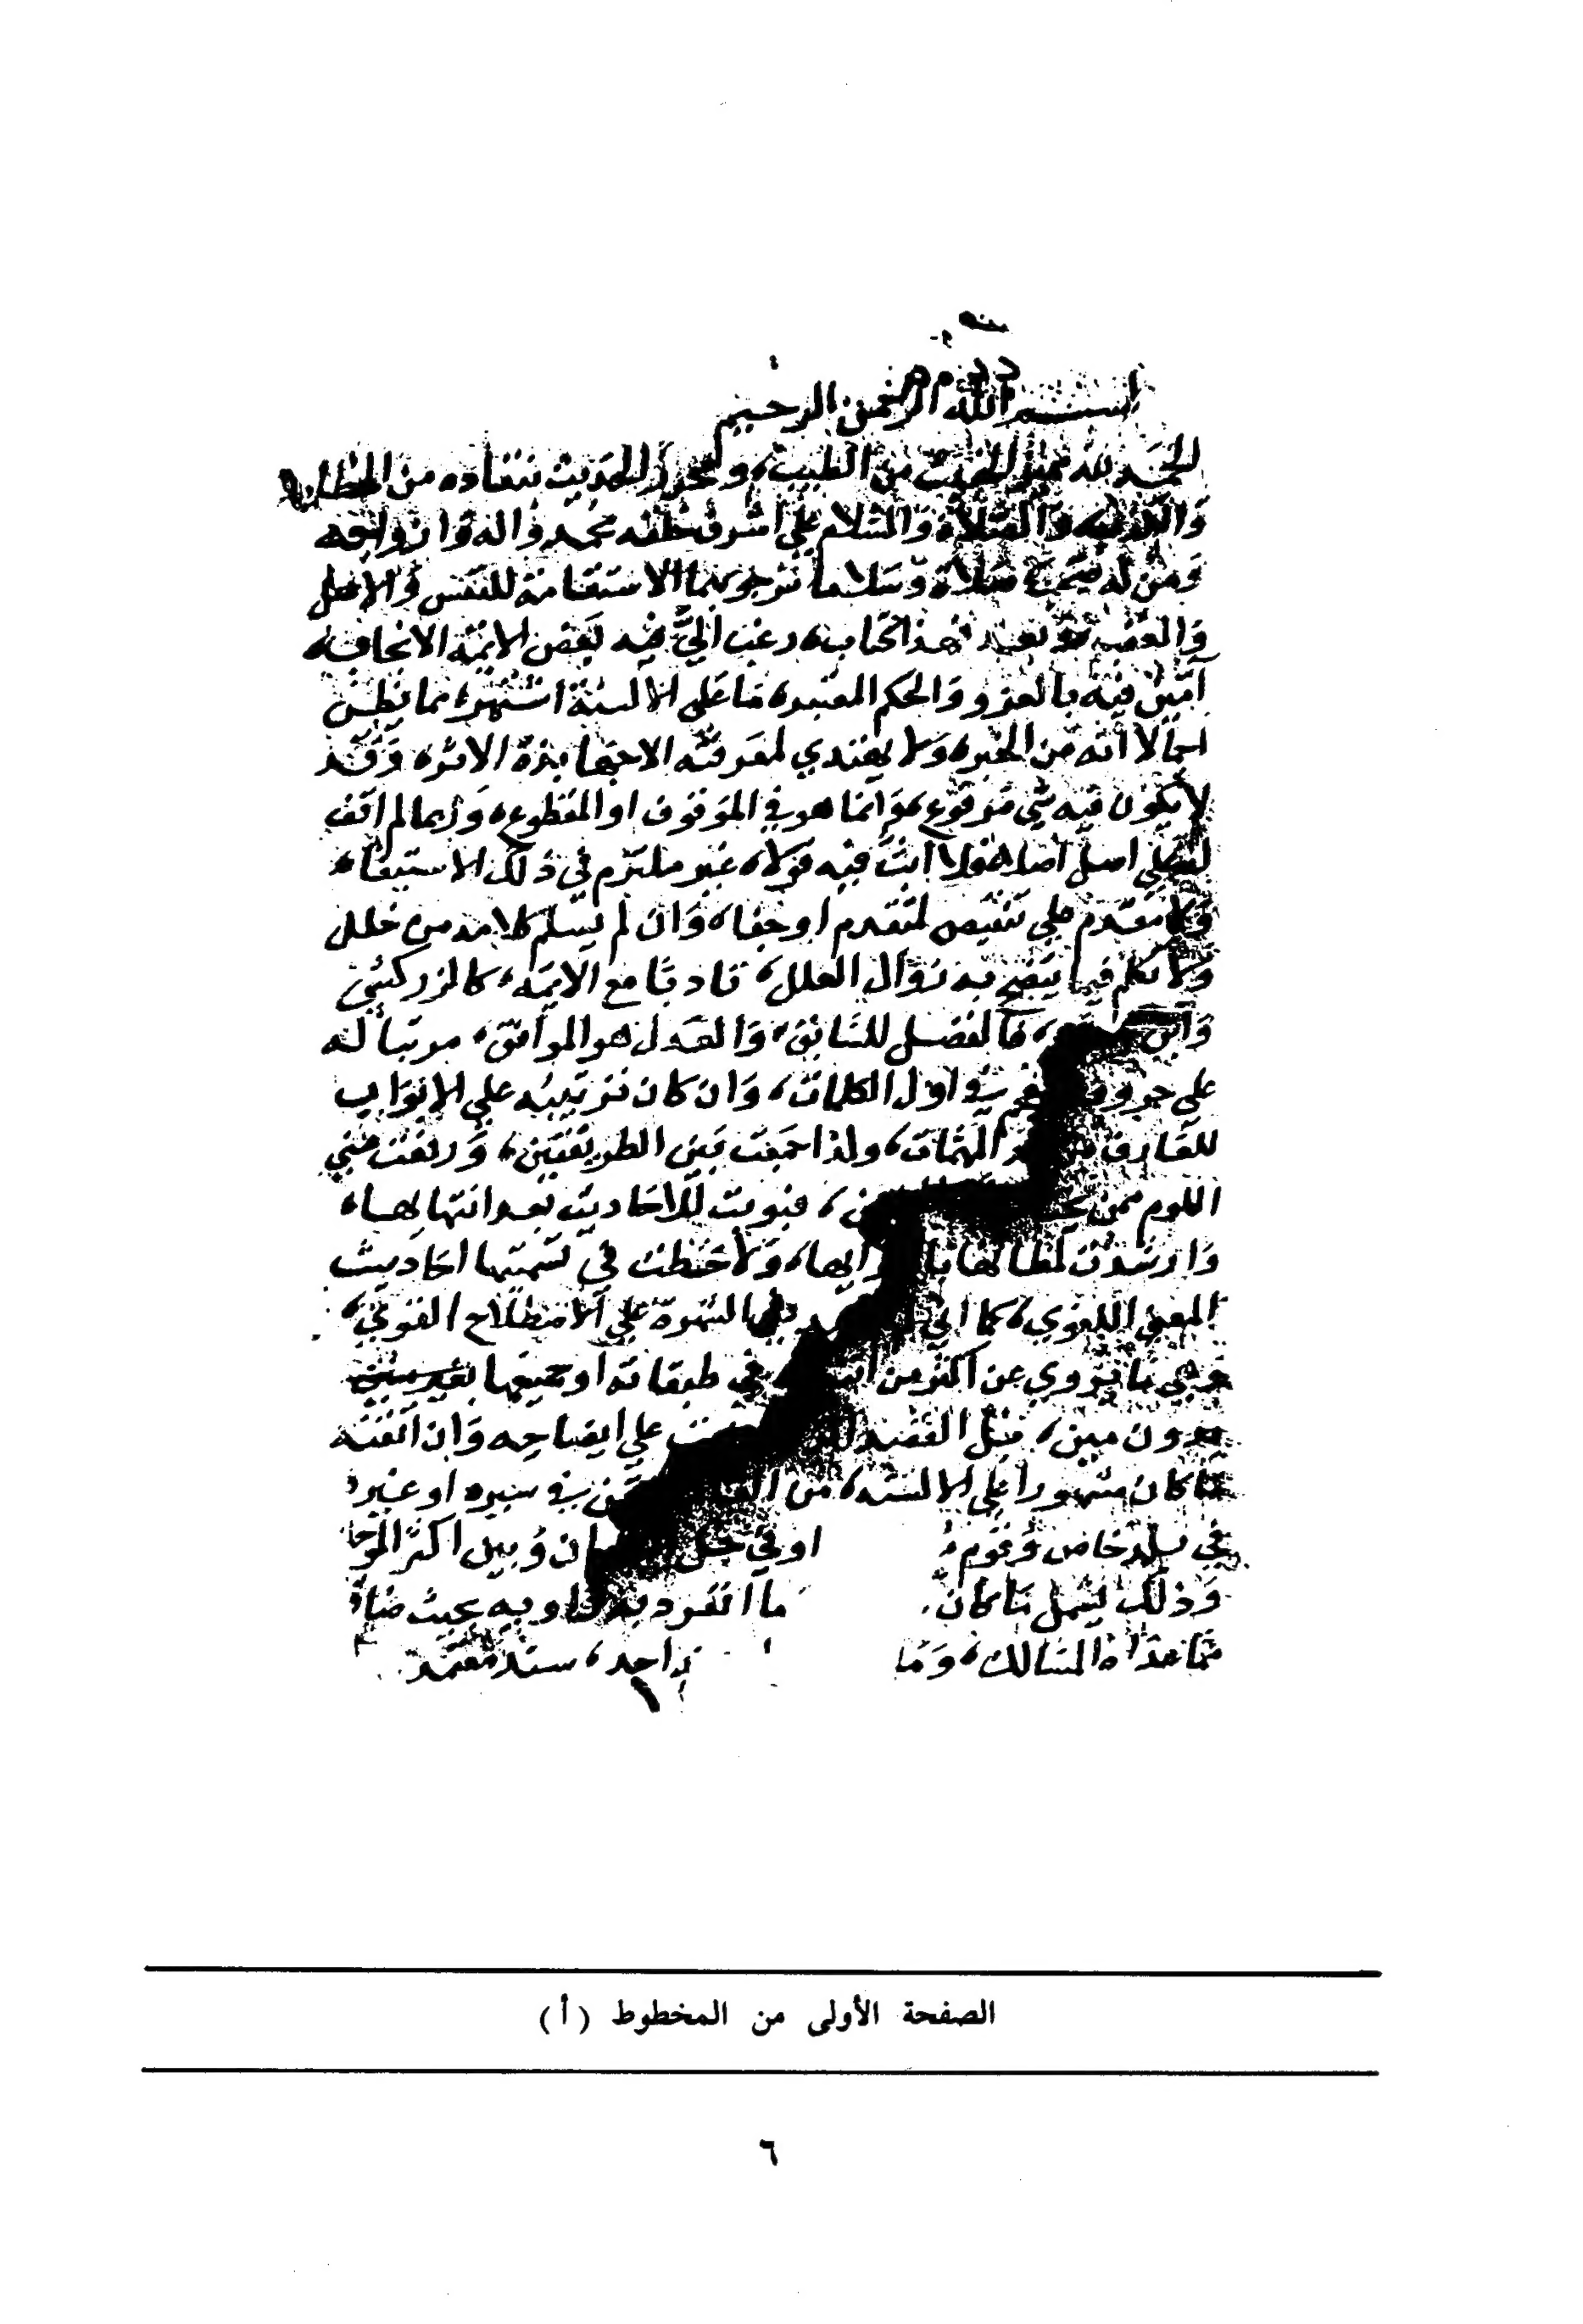 بسم الله الرحمن الرحيم
الحمد لله مميز الخبيث من الطيب، ومحرز الحديث بنقاده من الخطأ
والصلاة والسلام على أشرف خلقه محمد وآله وأزواجه
ومن له صحب صلاة وسلاما نرجو بهما الاستقامة للنفس والأهل
والعقب، وبعد فهذا كتاب، رغب إلي فيه بعض الأئمة الأنجاب،
أبين فيه بالعزو والحكم المعتبر، ما على الألسنة اشتهر، مما يظن
إجمالا أنه من الخبر، ولا يهتدي لمعرفته إلا جهابذة الأثر، وقد
لا يكون فيه شي مرفوع، وإنما هو في الموقوف أو المقطوع، وربما لم أقف
له على أصل أصلا، فلا أبت فيه قولا، غير ملتزم في ذلك الاستيفاء
تنقيص لمتقدم أو جفا، وإن لم يسلم كلامه من خلل
ولا تكلم فيما يتضح به زوال العلل، تأدبا مع الأئمة، كالزركشي
وابن فالفضل للسابق، والعدل هو الموافق، مرتبا له
على حروف في أول الكلمات، وإن كان ترتيبه على الأبواب
للعارف المهمات، ولذا جمعت بين الطريقتين، ورفعت عني
اللوم ممن فبوبت للأحاديث بعد انتهايها،
وأرشدت لمظانها ولاحظت في تسميتها أحاديث
المعنى اللغوي، كما أني الشهرة على الاصطلاح القوي،
وهي ما يروى عن أكثر من في طبقاته أو جميعها
بدون مين، بل القصد على إيضاحه وإن أتقنه
ما كان مشهورا على الألسنة، من في سبره أو غيره
في بلد خاص وقوم أو في جل وبين أكثر الموجا
وذلك يشمل ما كان ما انفرد به راويه بحيث ضاق
مما عداه المسالك، وما واحد، سند معتمد
الصفحة الأولى من المخطوط (أ)
٦